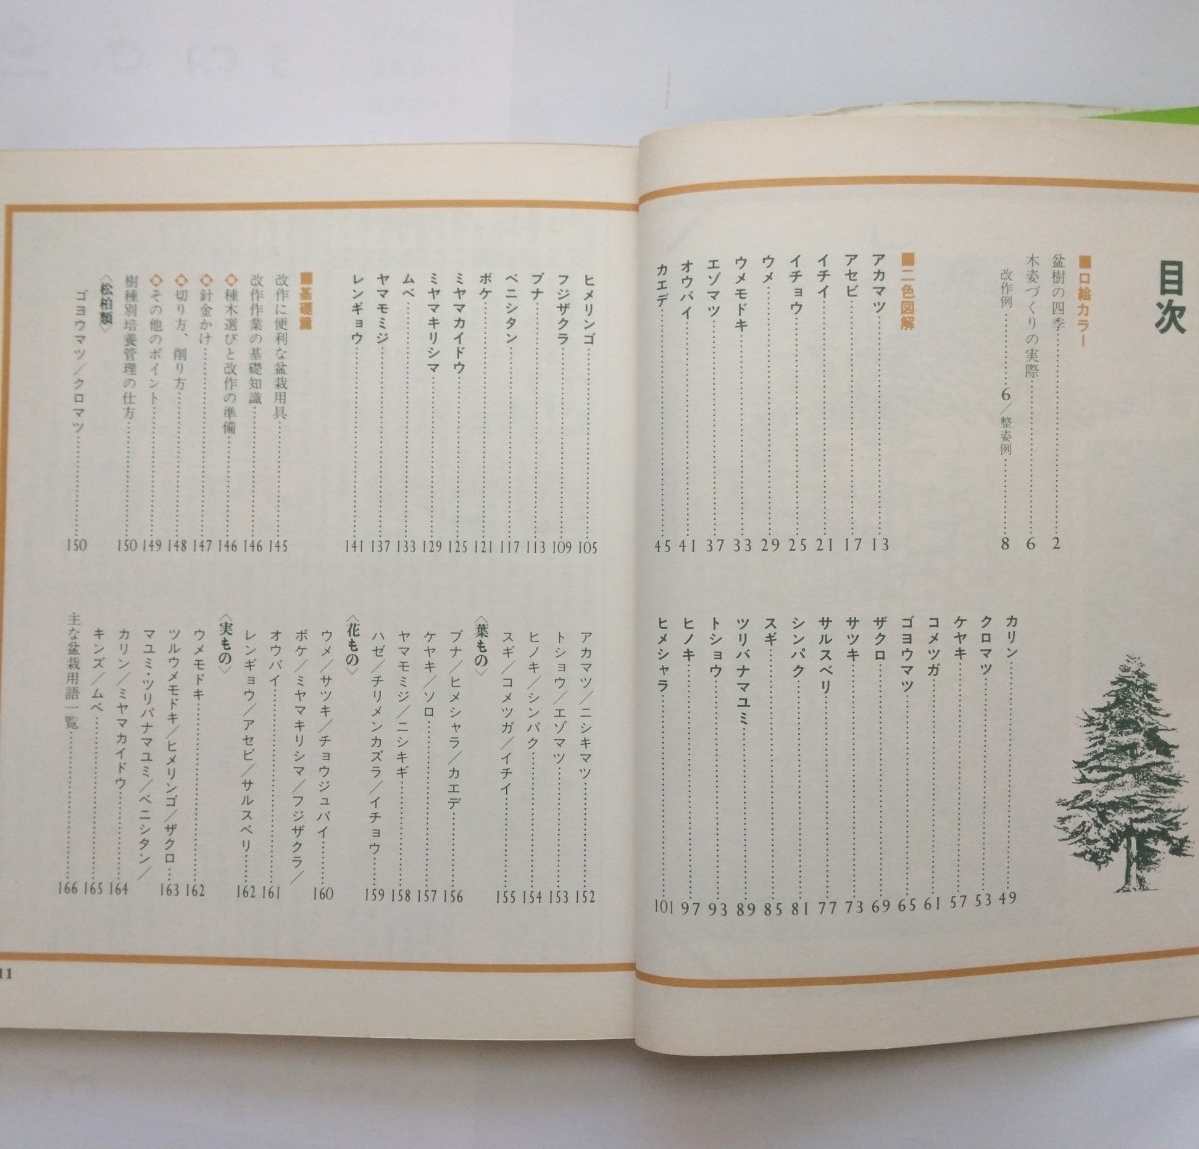 目次
■口絵カラー
盆樹の四季……2
木姿づくりの実際……6
改作例……6／整姿例……8
■二色図解
アカマツ……13
アセビ……17
イチイ……21
イチョウ……25
ウメ……29
ウメモドキ……33
エゾマツ……37
オウバイ……41
カエデ……45
カリン……49
クロマツ……53
ケヤキ……57
コメツガ……61
ゴヨウマツ……65
ザクロ……69
サツキ……73
サルスベリ……77
シンパク……81
スギ……85
ツリバナマユミ……89
トショウ……93
ヒノキ……97
ヒメシャラ……101
ヒメリンゴ……105
フジザクラ……109
ブナ……113
ベニシタン……117
ボケ……121
ミヤマカイドウ……125
ミヤマキリシマ……129
ムベ……133
ヤマモミジ……137
レンギョウ……141
■基礎篇
改作に便利な盆栽用具……145
改作作業の基礎知識……146
種木選びと改作の準備……146
針金かけ……147
切り方、削り方……148
その他のポイント……149
樹種別培養管理の仕方……150
〈松柏類〉
ゴヨウマツ／クロマツ……150
アカマツ／ニシキマツ……152
トショウ／エゾマツ……153
ヒノキ／シンパク……154
スギ／コメツガ／イチイ……155
〈葉もの〉
ブナ／ヒメシャラ／カエデ……156
ケヤキ／ソロ……157
ヤマモミジ／ニシキギ……158
ハゼ／チリメンカズラ／イチョウ……159
〈花もの〉
ウメ／サツキ／チョウジュバイ……160
ボケ／ミヤマキリシマ／フジザクラ／
オウバイ……161
レンギョウ／アセビ／サルスベリ……162
〈実もの〉
ウメモドキ……162
ツルウメモドキ／ヒメリンゴ／ザクロ……163
マユミ・ツリバナマユミ／ベニシタン／
カリン／ミヤマカイドウ……164
キンズ／ムベ……165
主な盆栽用語一覧……166
11